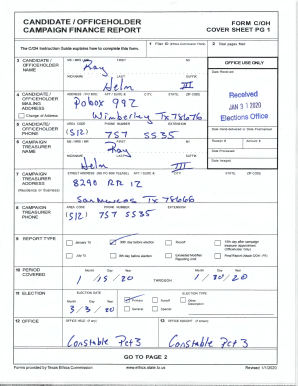 CANDIDATE / OFFICEHOLDER
CAMPAIGN FINANCE REPORT
FORM C/OH
COVER SHEET PG 1
The C/OH Instruction Guide explains how to complete this form.
1 Filer ID (Ethics Commission Filers)
2 Total pages filed:
3 CANDIDATE / OFFICEHOLDER NAME
MS / MRS / MR FIRST MI
Ray
NICKNAME LAST SUFFIX
Helm III
OFFICE USE ONLY
Date Received
Received
JAN 31 2020
Elections Office
4 CANDIDATE / OFFICEHOLDER MAILING ADDRESS
Change of Address
ADDRESS / PO BOX; APT / SUITE #; CITY; STATE; ZIP CODE
PO box 992
Wimberley Tx 78676
5 CANDIDATE / OFFICEHOLDER PHONE
AREA CODE PHONE NUMBER EXTENSION
(512) 757 5535
Date Hand-delivered or Date Postmarked
Receipt # Amount $
Date Processed
Date Imaged
6 CAMPAIGN TREASURER NAME
MS / MRS / MR FIRST MI
Ray
NICKNAME LAST SUFFIX
Helm III
7 CAMPAIGN TREASURER ADDRESS
(Residence or Business)
STREET ADDRESS (NO PO BOX PLEASE); APT / SUITE #; CITY; STATE; ZIP CODE
8290 RR 12
San Marcos Tx 78666
8 CAMPAIGN TREASURER PHONE
AREA CODE PHONE NUMBER EXTENSION
(512) 757 5535
9 REPORT TYPE
January 15
30th day before election
Runoff
15th day after campaign treasurer appointment (Officeholder Only)
July 15
8th day before election
Final Report (Attach C/OH - FR)
10 PERIOD COVERED
Month Day Year
1 / 15 / 20
THROUGH
Month Day Year
1 / 30 / 20
11 ELECTION
ELECTION DATE
Month Day Year
3 / 3 / 20
ELECTION TYPE
Primary
Runoff
Other Description
General
Special
12 OFFICE
OFFICE HELD (if any)
Constable Pct 3
13 OFFICE SOUGHT (if known)
Constable Pct 3
GO TO PAGE 2
Forms provided by Texas Ethics Commission
www.ethics.state.tx.us
Revised 1/1/2020